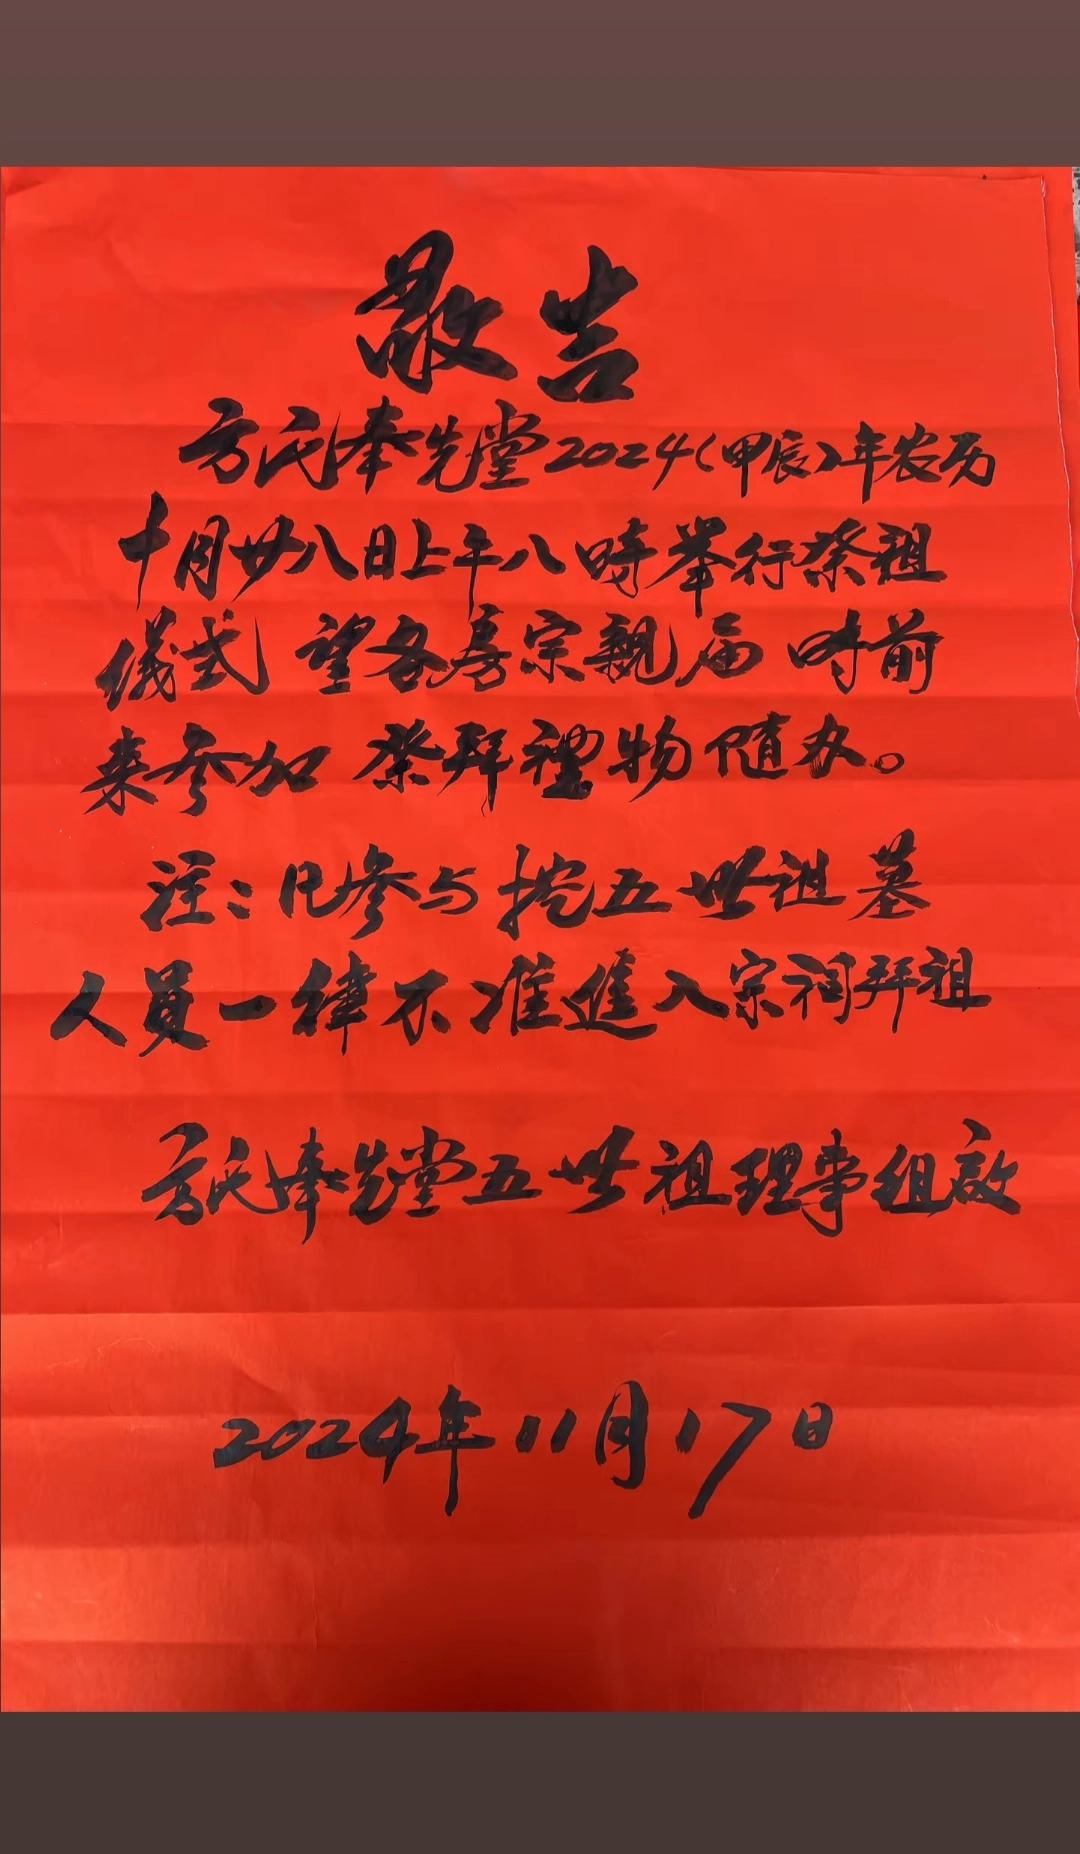 敬告
方氏奉先堂2024(甲辰)年农历
十月廿八日上午八時举行祭祖
儀式 望各房宗親届 时前
来参加 祭拜禮物随办。
注:凡参与挖五世祖墓
人員一律不准進入宗祠拜祖
方氏奉先堂五世祖理事组啟
2024年11月17日